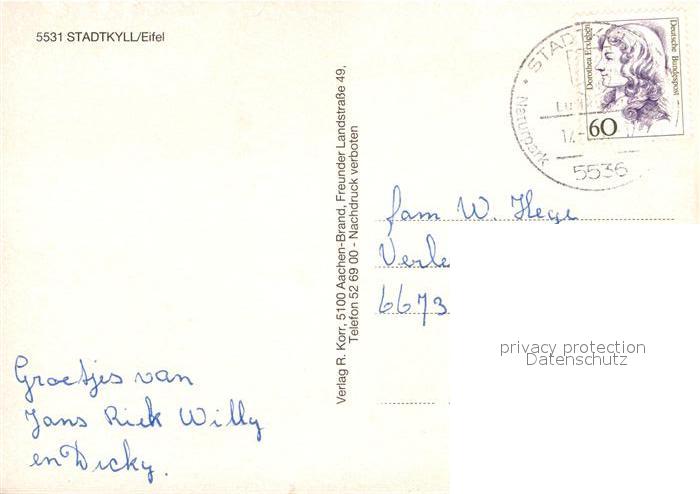 5531 STADTKYLL/Eifel
Dorothea Erxleben
Deutsche Bundespost
60
Naturpark
5536
Verlag R. Korr, 5100 Aachen-Brand, Freunder Landstraße 49,
Telefon 52 69 00 - Nachdruck verboten
fam W. Hege
Verle
6673
privacy protection
Datenschutz
Groetjes van
Jans Riek Willy
en Dicky.